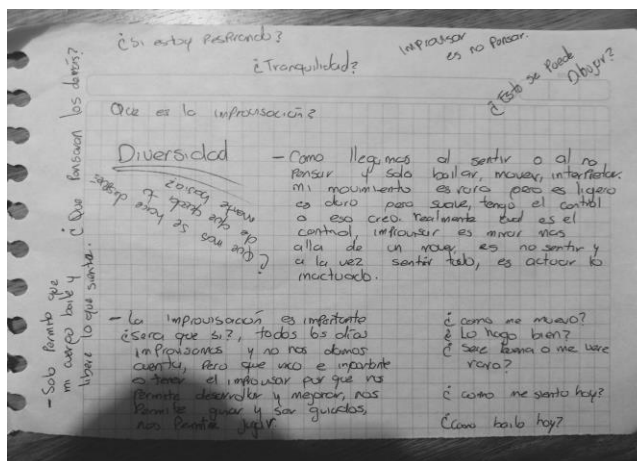 ¿Si estoy Respirando?
¿Tranquilidad?
Improvisar
es no Pensar.
¿Esto se Puede
Dibujar?
Que es la improvisación?
Diversidad
¿Que mas se hace despues
de que quedo
mente
- Como llegamos al sentir o al no
Pensar y solo bailar, mover, interpretar.
mi movimiento es raro pero es ligero
es duro pero suave, tengo el control
o eso creo. realmente cual es el
control, improvisar es mirar mas
alla de un mover, es no sentir y
a la vez sentir todo, es actuar lo
inactuado.
¿Que Pensaran los demás?
- Solo Permito que
mi cuerpo baile y
libere lo que siente.
- la improvisación es importante
¿sera que si?, todos los días
improvisamos y no nos damos
cuenta, Pero que importante
el improvisar por que nos
Permite desarrollar y mejorar, nos
Permite guiar y ser guiados,
nos Permite jugar.
¿como me muevo?
¿Lo hago bien?
¿Sere buena o me vere
rara?
¿como me siento hoy?
¿Como bailo hoy?